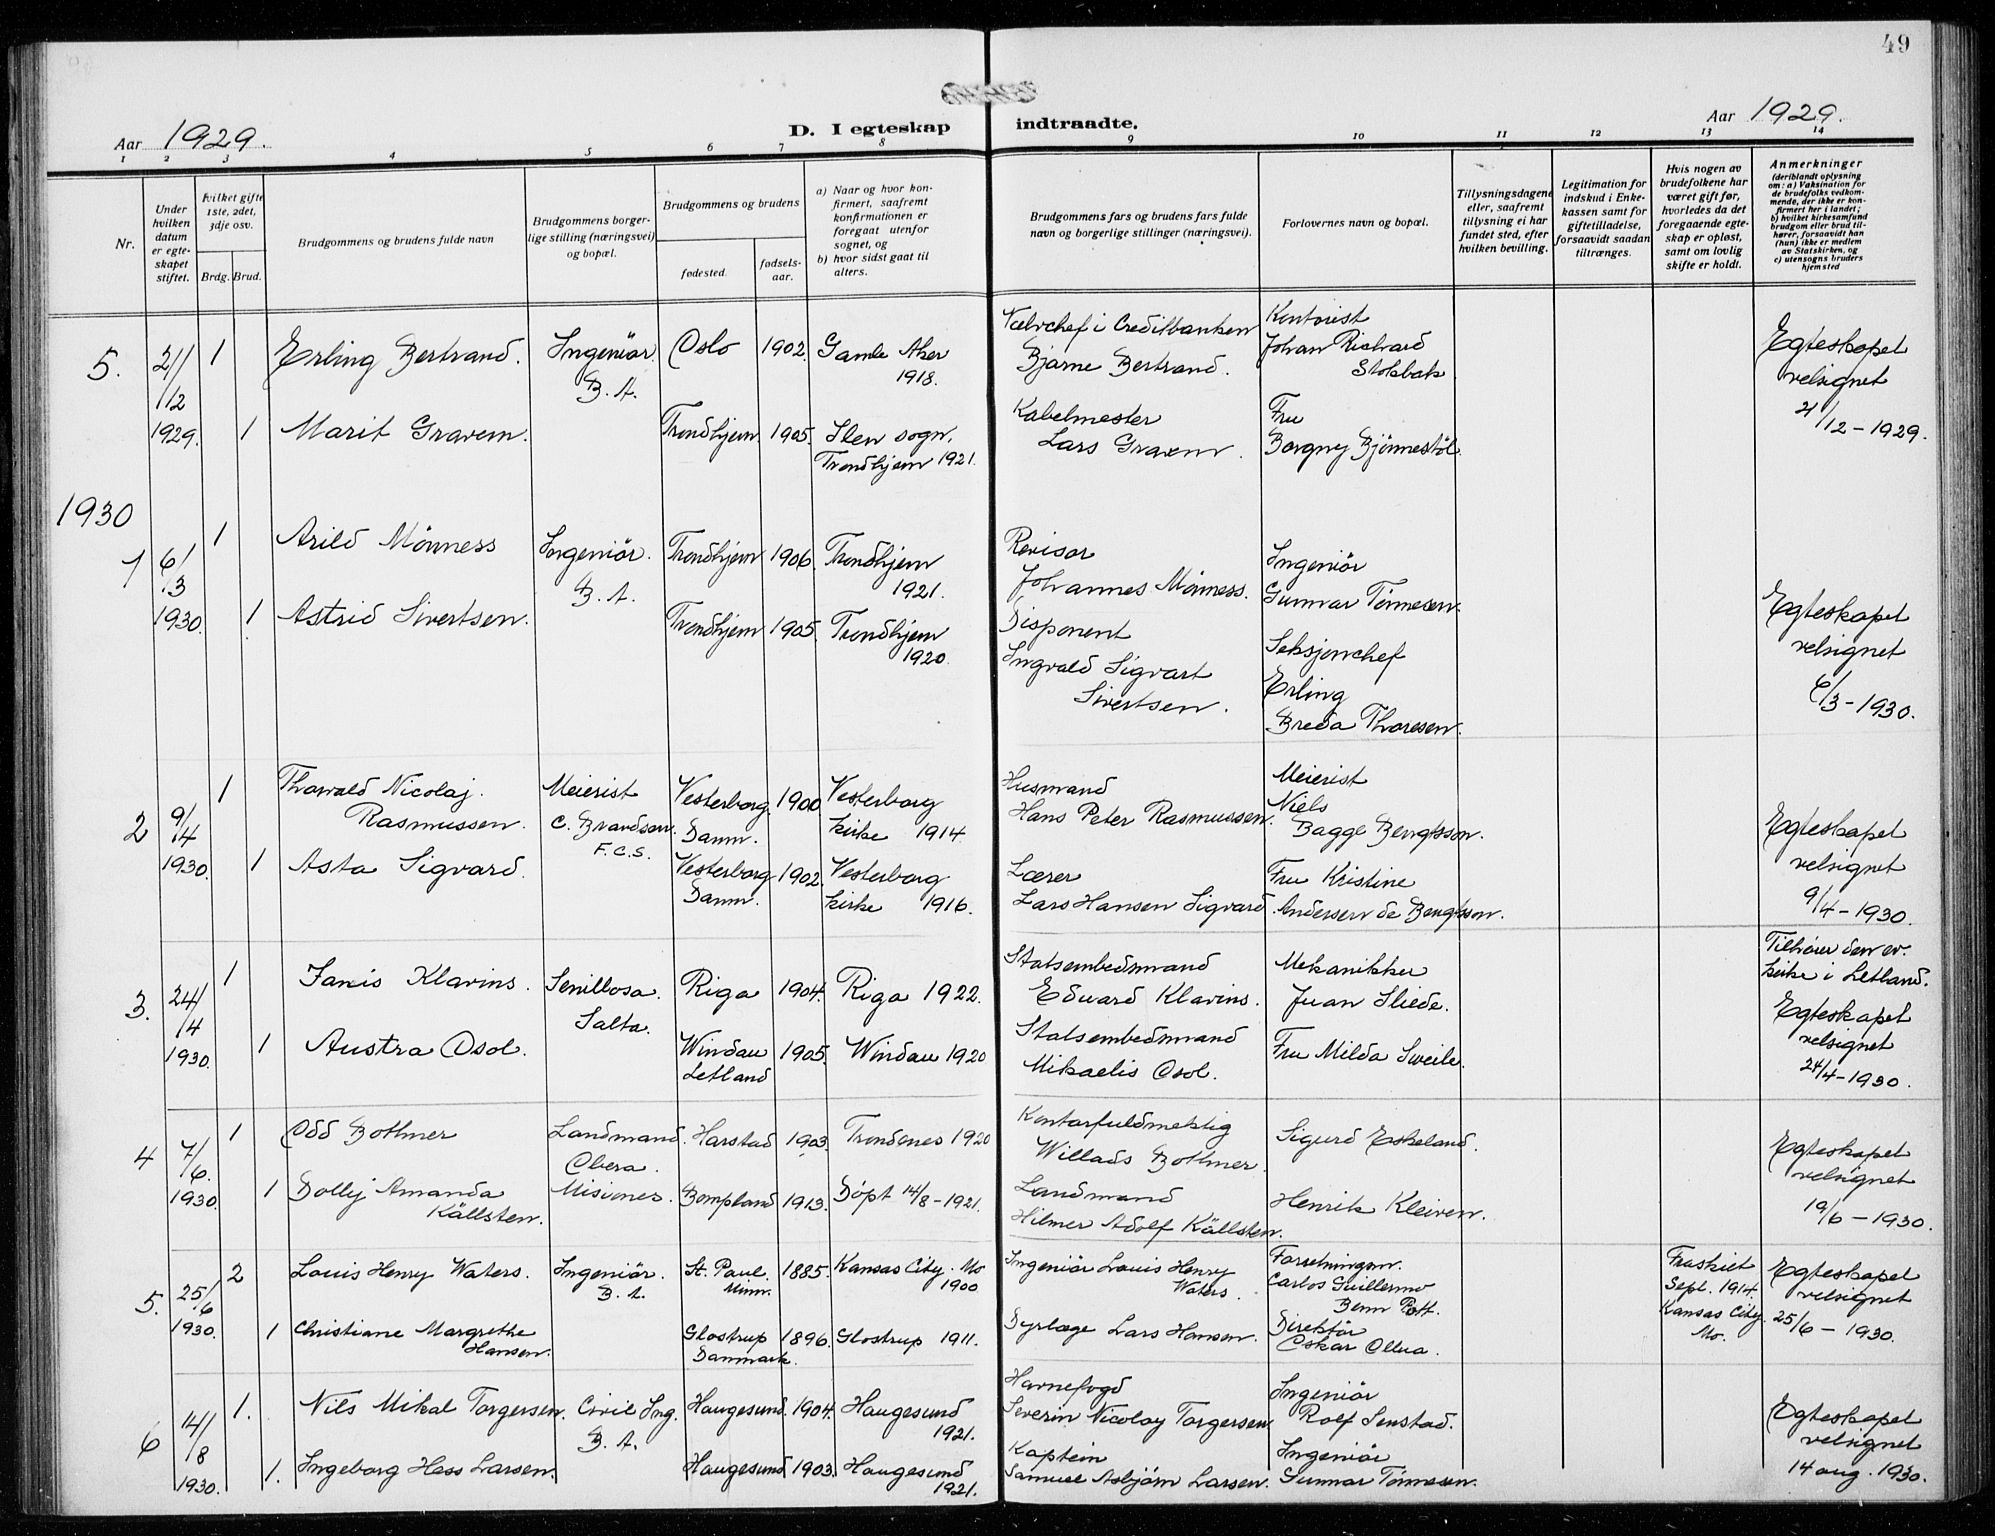 49
Aar 1929.
D. I egteskap indtraadte.
Aar 1929.
1 2 3 4 5 6 7 8 9 10 11 12 13 14
Nr.
Under hvilken datum er egteskapet stiftet.
hvilket gifte 1ste, 2det, 3dje osv.
Brdg. Brud.
Brudgommens og brudens fulde navn
Brudgommens borgerlige stilling (næringsvei) og bopæl.
Brudgommens og brudens
fødested.
fødselsaar.
a) Naar og hvor konfirmert, saafremt konfirmationen er foregaat utenfor sognet, og
b) hvor sidst gaat til alters.
Brudgommens fars og brudens fars fulde navn og borgerlige stillinger (næringsvei).
Forlovernes navn og bopæl.
Tillysningsdagene eller, saafremt tillysning ei har fundet sted, efter hvilken bevilling.
Legitimation for indskud i Enkekassen samt for giftetilladelse, forsaavidt saadan tiltrænges.
Hvis nogen av brudefolkene har været gift før, hvorledes da det foregaaende egteskap er opløst, samt om lovlig skifte er holdt.
Anmerkninger
(deriblandt oplysning om: a) Vaksination for de brudefolks vedkommende, der ikke er konfirmert her i landet; b) hvilket kirkesamfund brudgom eller brud tilhører, forsaavidt han (hun) ikke er medlem av Statskirken, og c) utensogns bruders hjemsted
5. 21/12 1929. 1 Erling Bertrand. Ingeniør. B.A. Oslo 1902. Gamle Aker 1918.
Creditbanken Bjarne Bertrand. Kontorist Johan Richard Stokbak
Egteskapet velsignet 21/12-1929.
1 Marit Gravem. Trondhjem 1905. Ilen sogn, Trondhjem 1921.
Kabelmester Lars Gravem. Fru Borgny Bjønnestøl
1930
1 6/3 1930. 1 Arild Mønness Ingeniør. B.A. Trondhjem 1906. Trondhjem 1921.
Revisor Johannes Mønness. Ingeniør Gunnar Tønnesen.
1 Astrid Sivertsen. Trondhjem 1905. Trondhjem 1920.
Disponent Ingvald Sigvart Sivertsen. Seksjonchef Erling Breda Thoresen.
Egteskapet velsignet 6/3-1930.
2 9/4 1930. 1 Thorvald Nicolaj Rasmussen. Meierist C. Brandsen. F.C.S. Vesterborg Danm. 1900 Vesterborg kirke 1914.
Husmand Hans Peter Rasmussen. Meierist Niels Bagge Bengtsson.
1 Asta Sigvard. Vesterborg Danm. 1902. Vesterborg kirke 1916.
Lærer Lars Hansen Sigvard. Fru Kristine Andersen de Bengtsson.
Egteskapet velsignet 9/4-1930.
3. 24/4 1930. 1 Janis Klavins. Senillosa. Salta. Riga 1904. Riga 1922.
Statsembedmand Eduard Klavins. Mekanikker Juan Sliede.
Tilhører den ev. kirke i Letland.
1 Austra Osol. Windau Letland 1905. Windau 1920
Statsembedmand Mikaelis Osol. Fru Milda Sweile.
Egteskapet velsignet 24/4-1930.
4 7/6. 1930. 1 Odd Bothner Landmand. Obera. Misiones. Harstad 1903. Trondenes 1920
Kontorfuldmektig Willads Bothner. Sigurd Eskeland.
1 Dolly Amanda Källsten. Bompland 1913. Døpt 14/8-1921.
Landmand Hilmer Adolf Källsten. Henrik Kleiven.
Egteskapet velsignet 19/6-1930.
5. 25/6 1930. 2 Louis Henry Waters. Ingeniør. B.A. St. Paul. Minn. 1885. Kansas City. Mo 1900
Ingeniør Louis Henry Waters. Forretningsm. Carlos Guillermo Benn Pott.
Fraskilt Sept. 1914. Kansas City Mo. Egteskapet velsignet 25/6-1930.
1 Christiane Margrethe Hansen. Glostrup Danmark. 1896. Glostrup 1911.
Dyrlæge Lars Hansen. Direktør Oskar Ollua.
6 14/8 1930. 1. Nils Mikal Torgersen. Civil Ing. B.A. Haugesund. 1904. Haugesund 1921.
Havnefogd Severin Nicolay Torgersen. Ingeniør Rolf Senstad.
1. Ingeborg Hess Larsen. Haugesund 1903. Haugesund 1921.
Kaptein Samuel Asbjørn Larsen. Ingeniør Gunnar Tønnesen.
Egteskapet velsignet 14 aug. 1930.